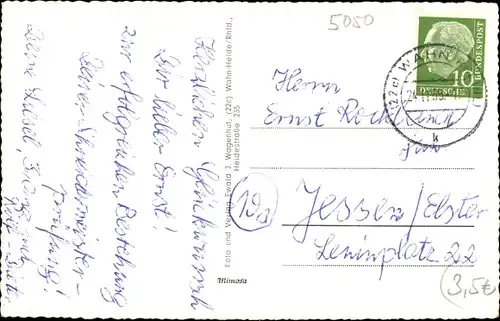 5050
Herzlichen Glückwunsch
Dir lieber Ernst!
Zur erfolgreichen Bestehung
Deiner Schneidermeister-
prüfung!
Deine Liesel,
Foto und Verlag Ewald J. Wagenhut, (22c) Wahn-Heide/Rhld.,
Heidestraße 235
Mimosa
10
DEUTSCHE BUNDESPOST
(22c) WAHN
Herrn
Ernst
(19a)
Jessen/Elster
Leninplatz 22
3,5€